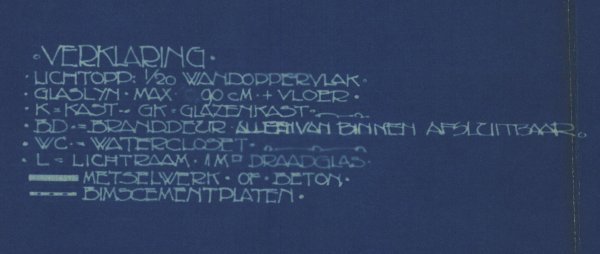 ·VERKLARING·
·LICHTOPP: 1/20 WANDOPPERVLAK·
·GLASLYN· MAX· 90 CM·+ VLOER·
·K = KAST·- GK = GLAZENKAST·
·BD·=BRANDDEUR· ALLEEN VAN BINNEN AFSLUITBAAR
·WC·= WATERCLOSET·
·L = LICHTRAAM· 1M□ DRAADGLAS·
METSELWERK· OF· BETON·
BIMSCEMENTPLATEN·